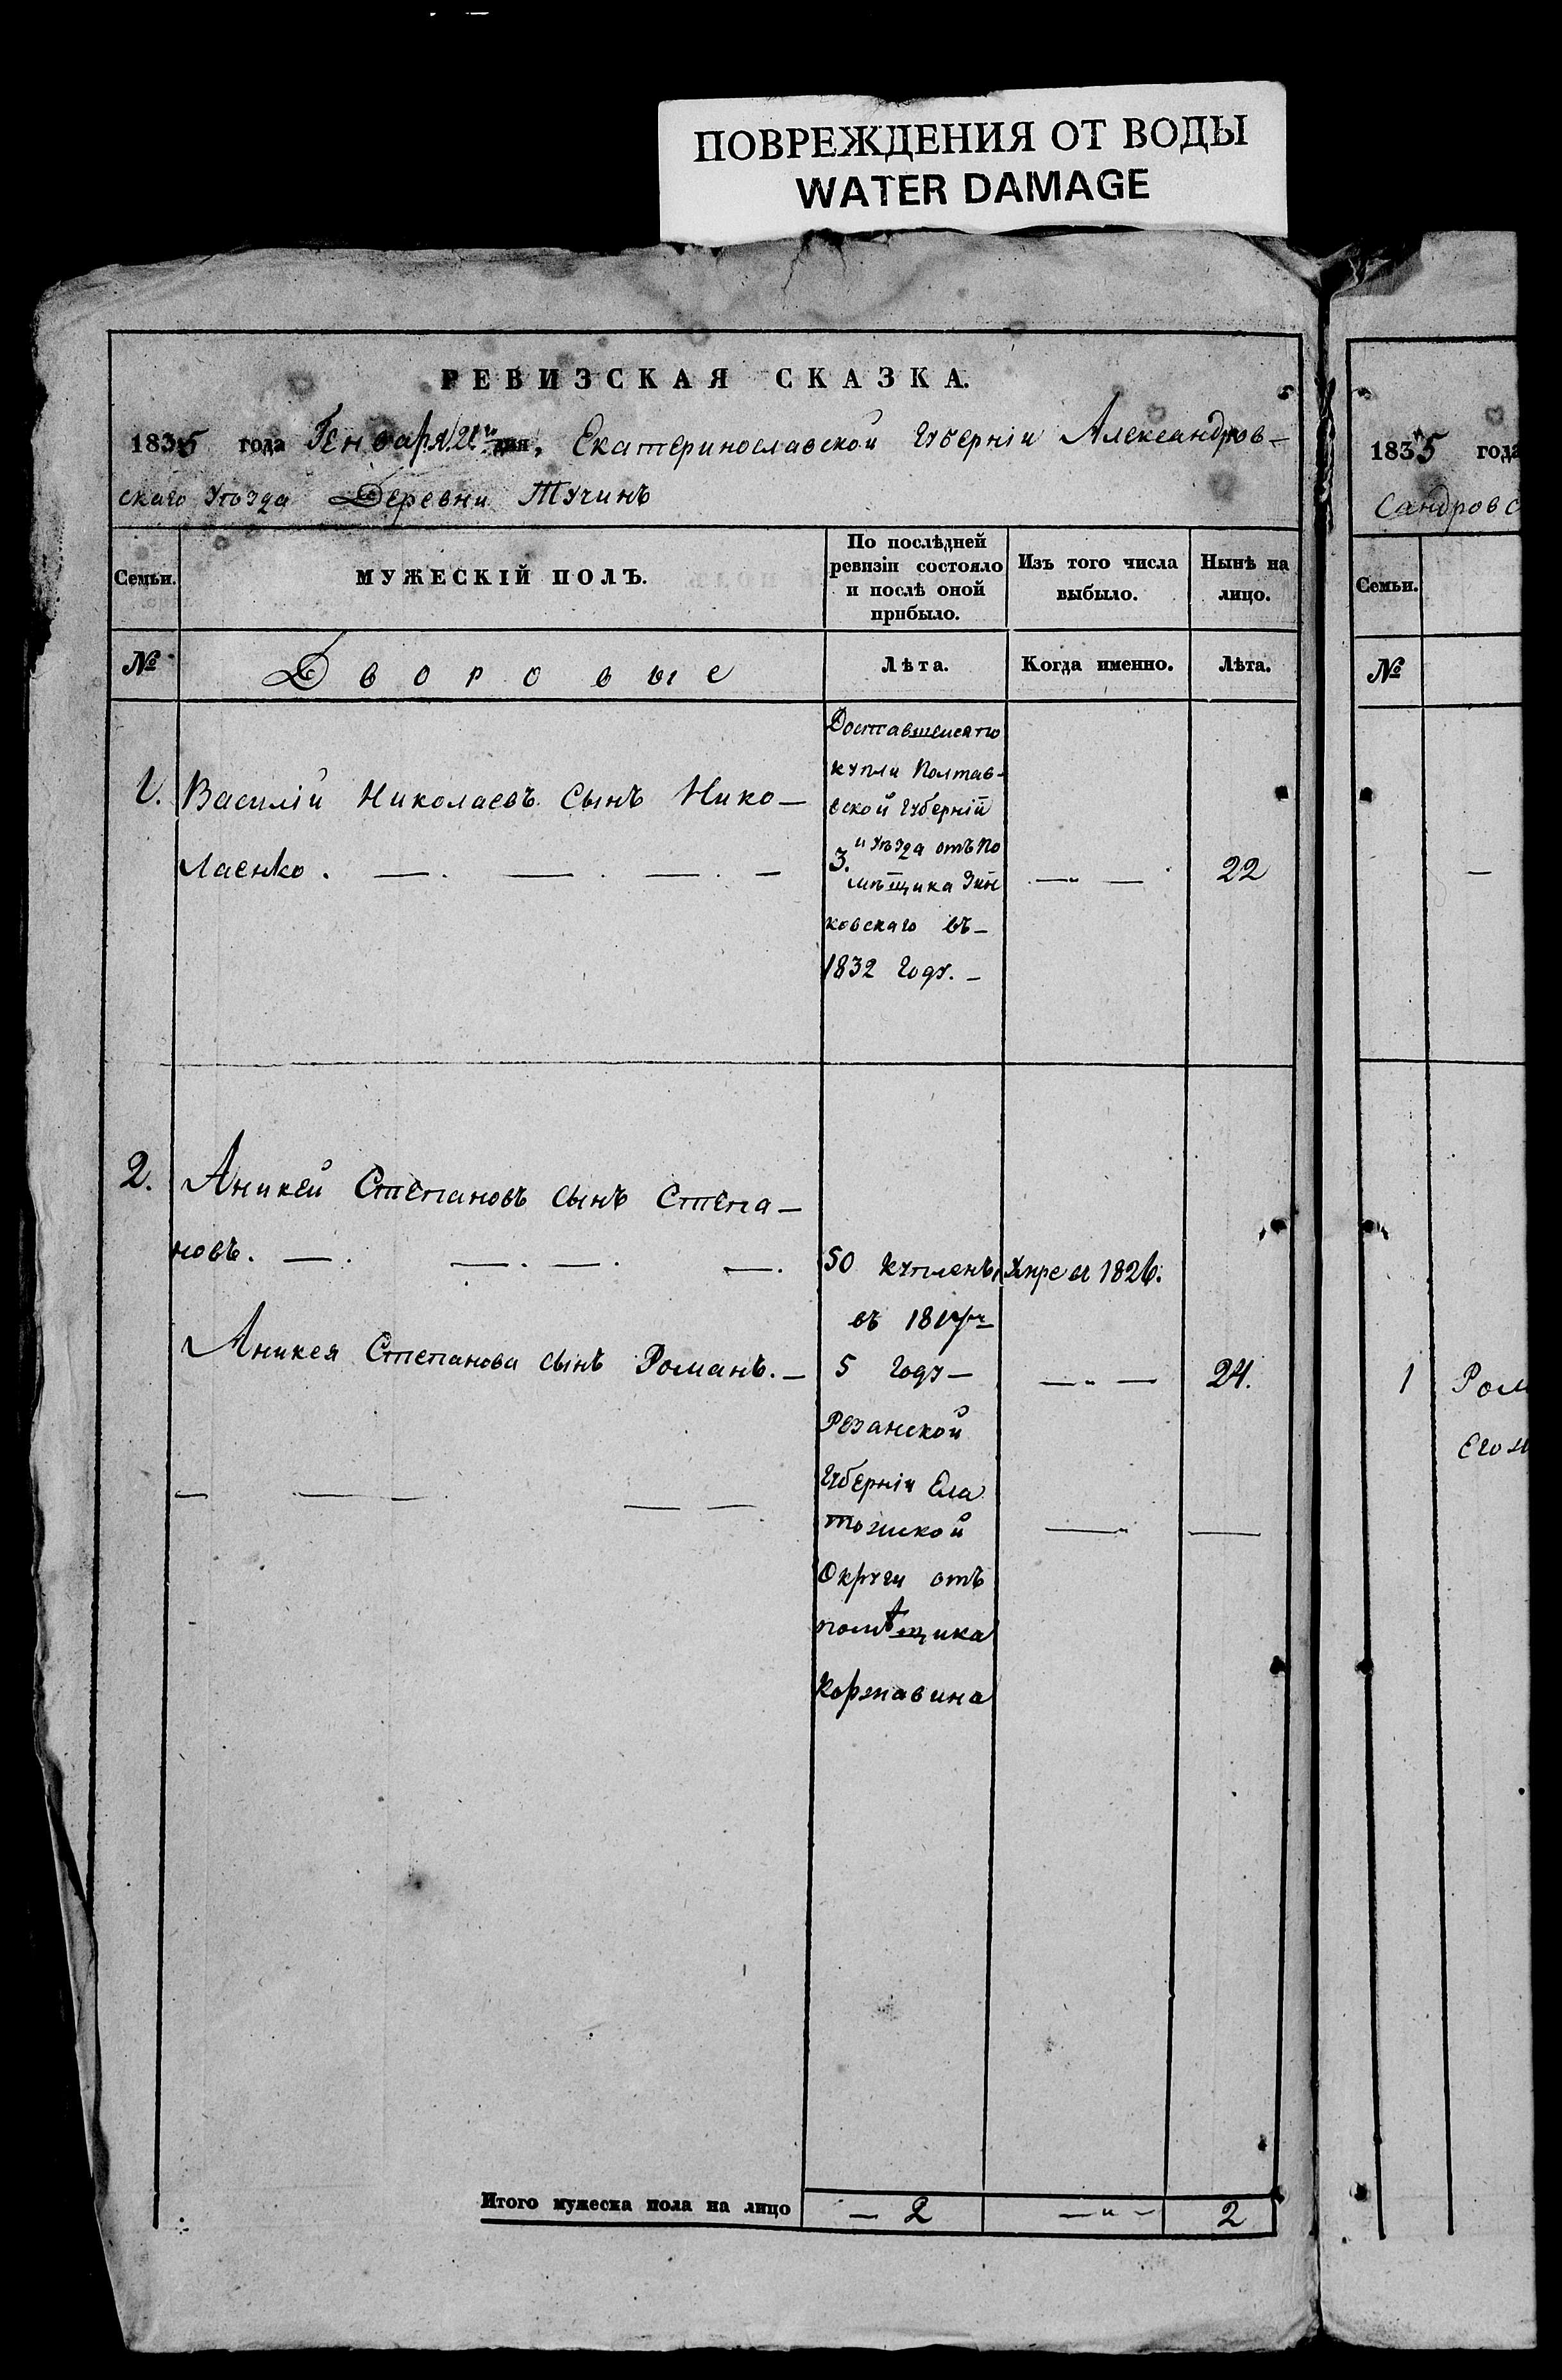 ПОВРЕЖДЕНИЯ ОТ ВОДЫ
WATER DAMAGE
РЕВИЗСКАЯ СКАЗКА.
1835 года Генваря 21го дня, Екатеринославской Губерніи Александров-
скаго Уѣзда Деревни Тучинъ
Семьи.
МУЖЕСКІЙ ПОЛЪ.
По послѣдней
ревизіи состояло
и послѣ оной
прибыло.
Изъ того числа
выбыло.
Нынѣ на
лицо.
№
Дворовые
Лѣта.
Когда именно.
Лѣта.
1. Василій Николаевъ сынъ Нико-
лаенко.
Доставшейся по
купли Полтав-
вской Губерніи
3. и уѣзда отъ По
мѣщика
ковскаго въ
1832 году.
22
2. Аникей Степановъ сынъ Степа-
новъ.
50 купленъ
Умре въ 1826.
въ
Аникея Степанова сынъ Романъ.
5 году
24.
Резанской
Губерніи Ела
томской
Округи отъ
помѣщика
Коржавина
Итого мужеска пола на лицо
2
2
1835 года
Сандровс
Семьи.
№
1 Ром
Его